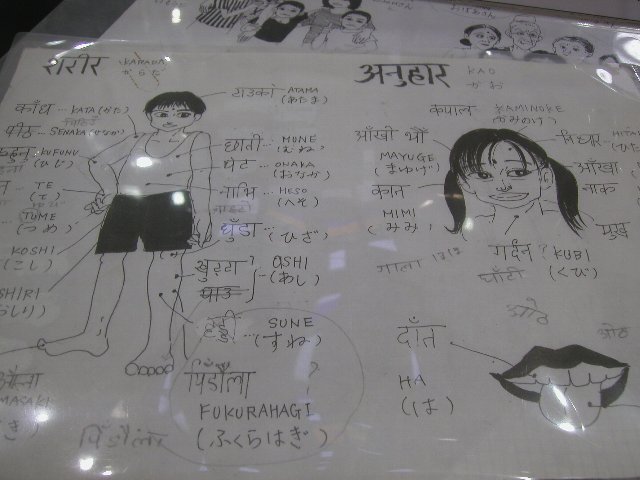 शरीर
KARADA
からだ
काँध ... KATA (かた)
SENAKA (せなか)
(ひじ)
TE
(て)
TUME
(つめ)
KOSHI
(こし)
SHIRI
MASAKI
टाउको ... ATAMA
(あたま)
छाती ... MUNE
(むね)
पेट ... ONAKA
(おなか)
नाभि ... HESO
(へそ)
घुँडा ... (ひざ)
ASHI
(あし)
SUNE
(すね)
पिँडौला ?
FUKURAHAGI
(ふくらはぎ)
पिँडौला
अनुहार
KAO
かお
कपाल ... KAMINOKE
(かみのけ)
आँखी भौँ
MAYUGE
(まゆげ)
कान
MIMI
(みみ)
निधार
आँखा
नाक
मुख
गर्दन ? KUBI
घाँटी (くび)
गाला
ओठ
दाँत
HA
(は)